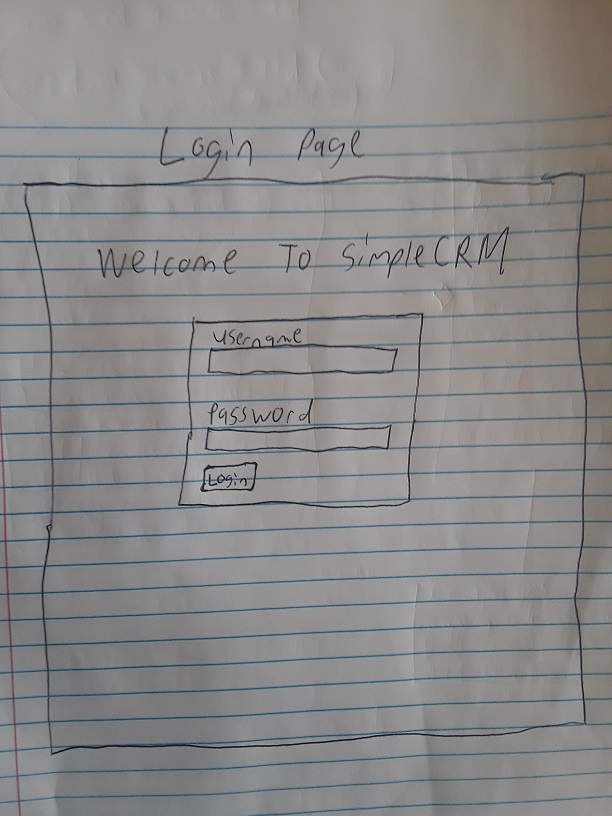 Login Page
Welcome To SimpleCRM
username
password
Login